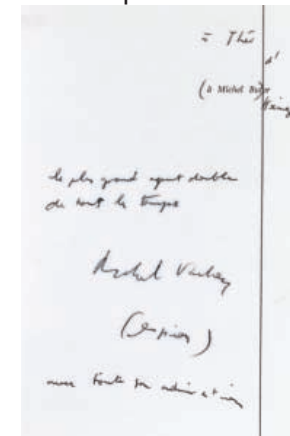 = Théo
(à Michel Butor
le plus grand agent double
de tous les temps
Michel Vachey
(espion)
avec toute son admiration